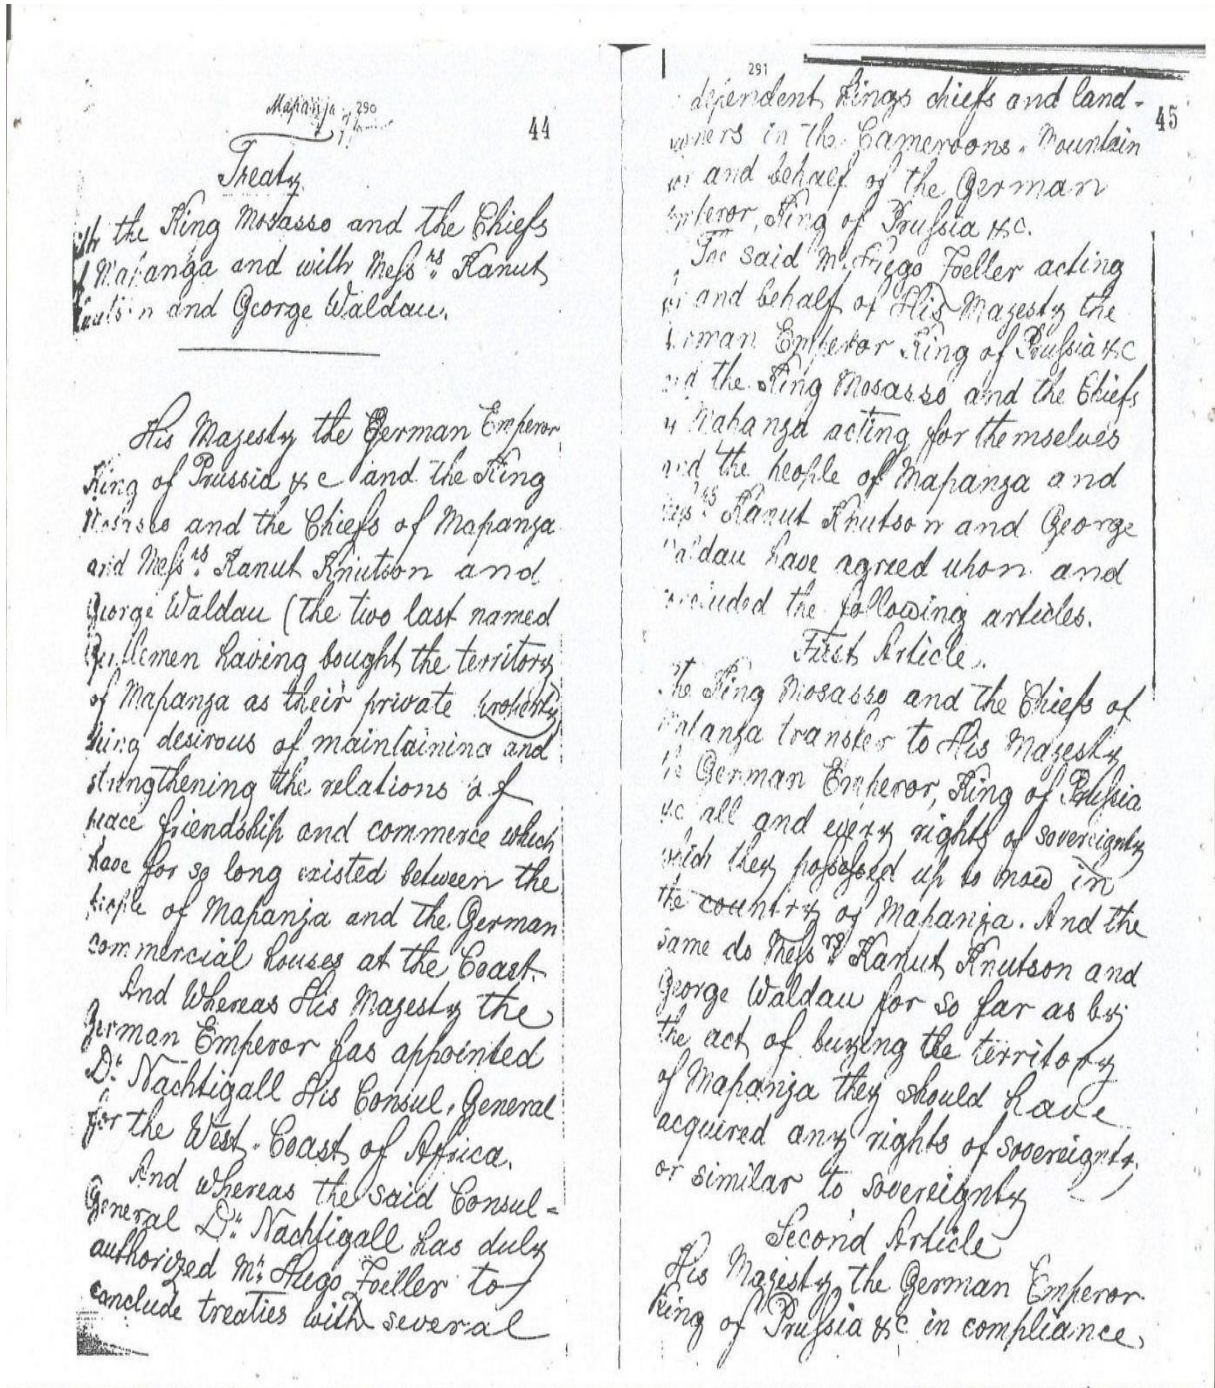 Mapanja 290
44
Treaty
the King Mosasso and the Chiefs
Mapanga and with Messrs. Kanut
and George Waldau.
His Majesty the German Emperor
King of Prussia &c and the King
and the Chiefs of Mapanja
and Messrs. Kanut Knutson and
George Waldau (the two last named
Gentlemen having bought the territory
of Mapanja as their private property
being desirous of maintaining and
strengthening the relations of
peace friendship and commerce which
have for so long existed between the
people of Mapanja and the German
commercial houses at the Coast.
And Whereas His Majesty the
German Emperor has appointed
Dr. Nachtigall His Consul, General
for the West-Coast of Africa.
And whereas the said Consul-
General Dr. Nachtigall has duly
authorized Mr. Hugo Zoeller to
conclude treaties with several
291
45
dependent Kings chiefs and land-
owners in the Cameroons-Mountain
and behalf of the German
Emperor, King of Prussia &c.
The said Mr. Hugo Zoeller acting
and behalf of His Majesty the
German Emperor King of Prussia &c
and the King Mosasso and the Chiefs
Mapanja acting for themselves
and the people of Mapanja and
Messrs. Kanut Knutson and George
Waldau have agreed upon and
concluded the following articles.
First Article.
The King Mosasso and the Chiefs of
Mapanja transfer to His Majesty
the German Emperor, King of Prussia
&c all and every rights of sovereignty
which they possessed up to now in
the country of Mapanja. And the
same do Messrs. Kanut Knutson and
George Waldau for so far as by
the act of buying the territory
of Mapanja they should have
acquired any rights of sovereignty,
or similar to sovereignty
Second Article
His Majesty the German Emperor
King of Prussia &c in compliance